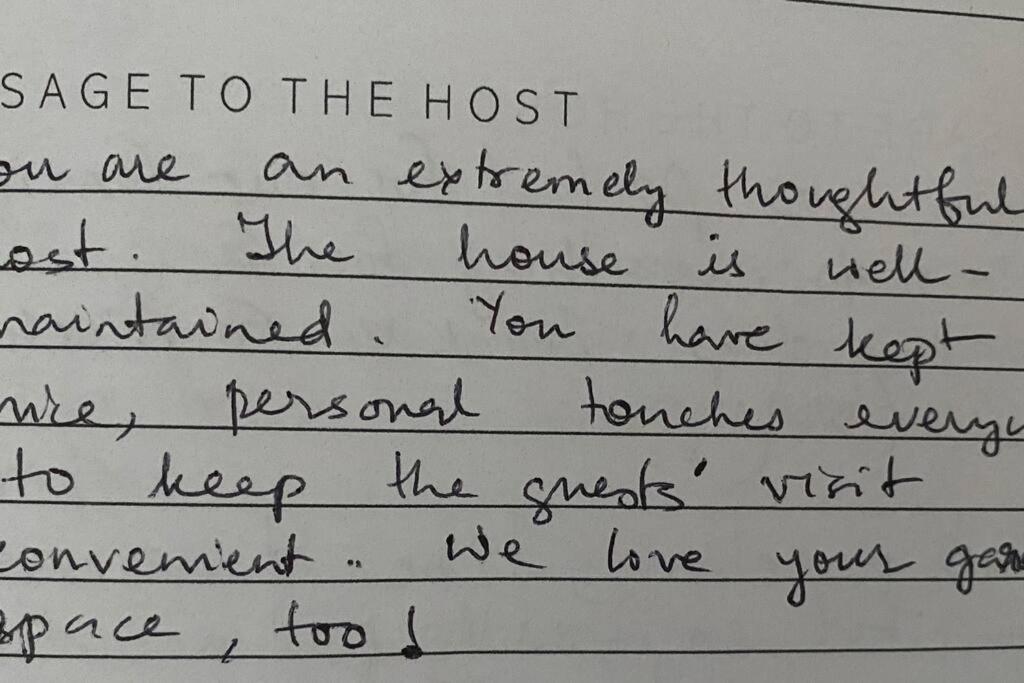 SAGE TO THE HOST
ou are an extremely thoughtful
ost. The house is well-
maintained. You have kept
nice, personal touches everyw
to keep the guests' visit
convenient.. We love your gar
space, too!